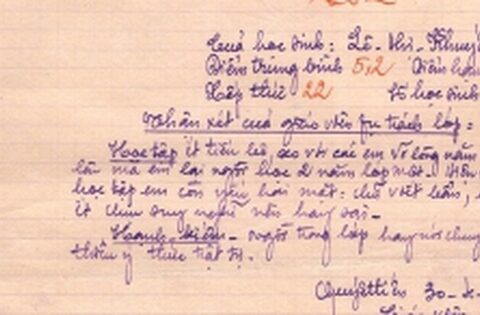 Của học sinh: Lê-thị-Khuy
Điểm trung bình 5,2 Điểm hạn
Xếp thứ 22 Số học sinh
Nhận xét của giáo viên phụ trách lớp:
Học tập ít tiến bộ, so với các em vỡ lòng năm
lần mà em lại ngồi học 2 năm lớp một.
học tập em còn yếu hai mặt: chữ viết bẩn,
ít chịu suy nghĩ nên hay sai-
Hạnh kiểm- ngồi trong lớp hay nói chuy
thiếu ý thức trật tự.
30-